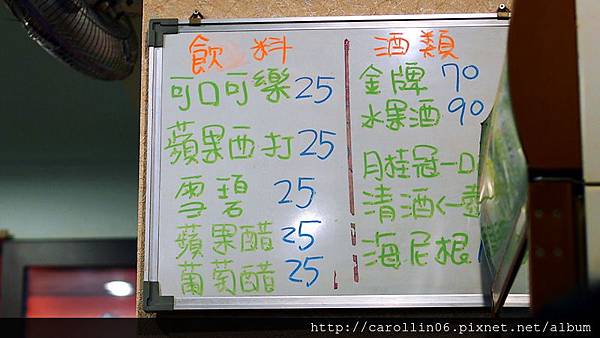 飲料
可口可樂 25
蘋果西打 25
雪碧 25
蘋果醋 25
葡萄醋 25
酒類
金牌 70
水果酒 90
月桂冠一
清酒<一壺
海尼根
http://carollin06.pixnet.net/album